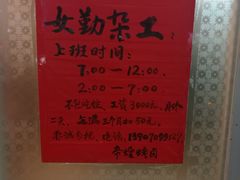 女勤杂工:
上班时间:
7:00—12:00.
2:00—7:00
不包吃饭,工资3000元,月休
二天,每满2个月加50元.
非诚勿扰,电话: